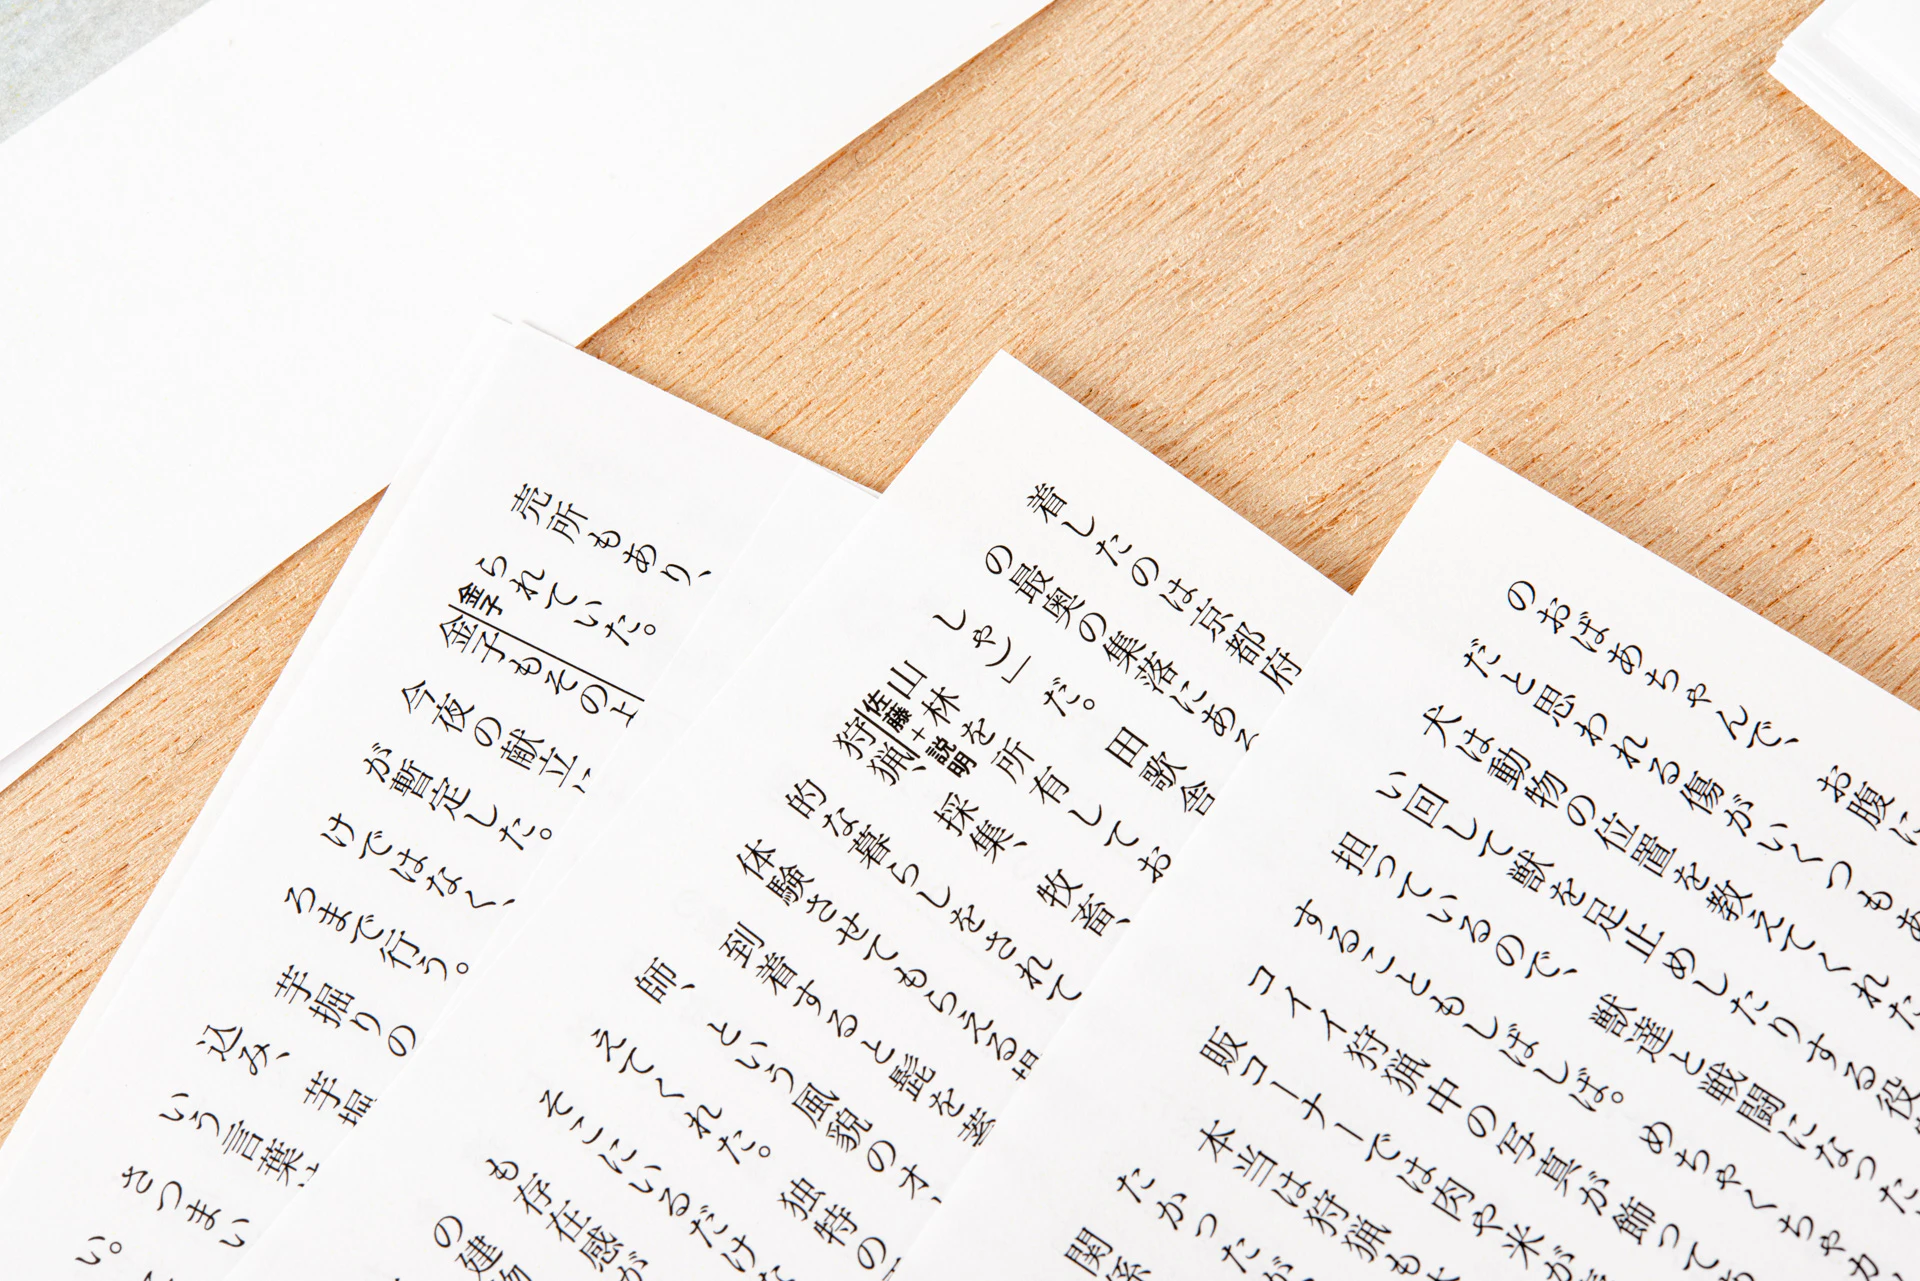 のおばあちゃんで、お腹に
だと思われる傷がいくつもあ
犬は動物の位置を教えてくれた
い回して獣を足止めしたりする役
担っているので、獣達と戦闘になった
することもしばしば。めちゃくちゃカ
コイイ狩猟中の写真が飾っても
販コーナーでは肉や米が
本当は狩猟も
たかったが
関係
着したのは京都府
の最奥の集落にあ
しゃ）」だ。田歌舎
山林を所有してお
佐藤+説明
狩猟、採集、牧畜、
的な暮らしをされて
体験させてもらえる
到着すると髭を
師、という風貌のオ
えてくれた。独特の
そこにいるだけ
も存在感が
の建物
売所もあり、
られていた。
金子
金子もその上
今夜の献立
が暫定した。
けではなく、
ろまで行う。
芋掘りの
込み、芋掘
いう言葉
さつまい
い。